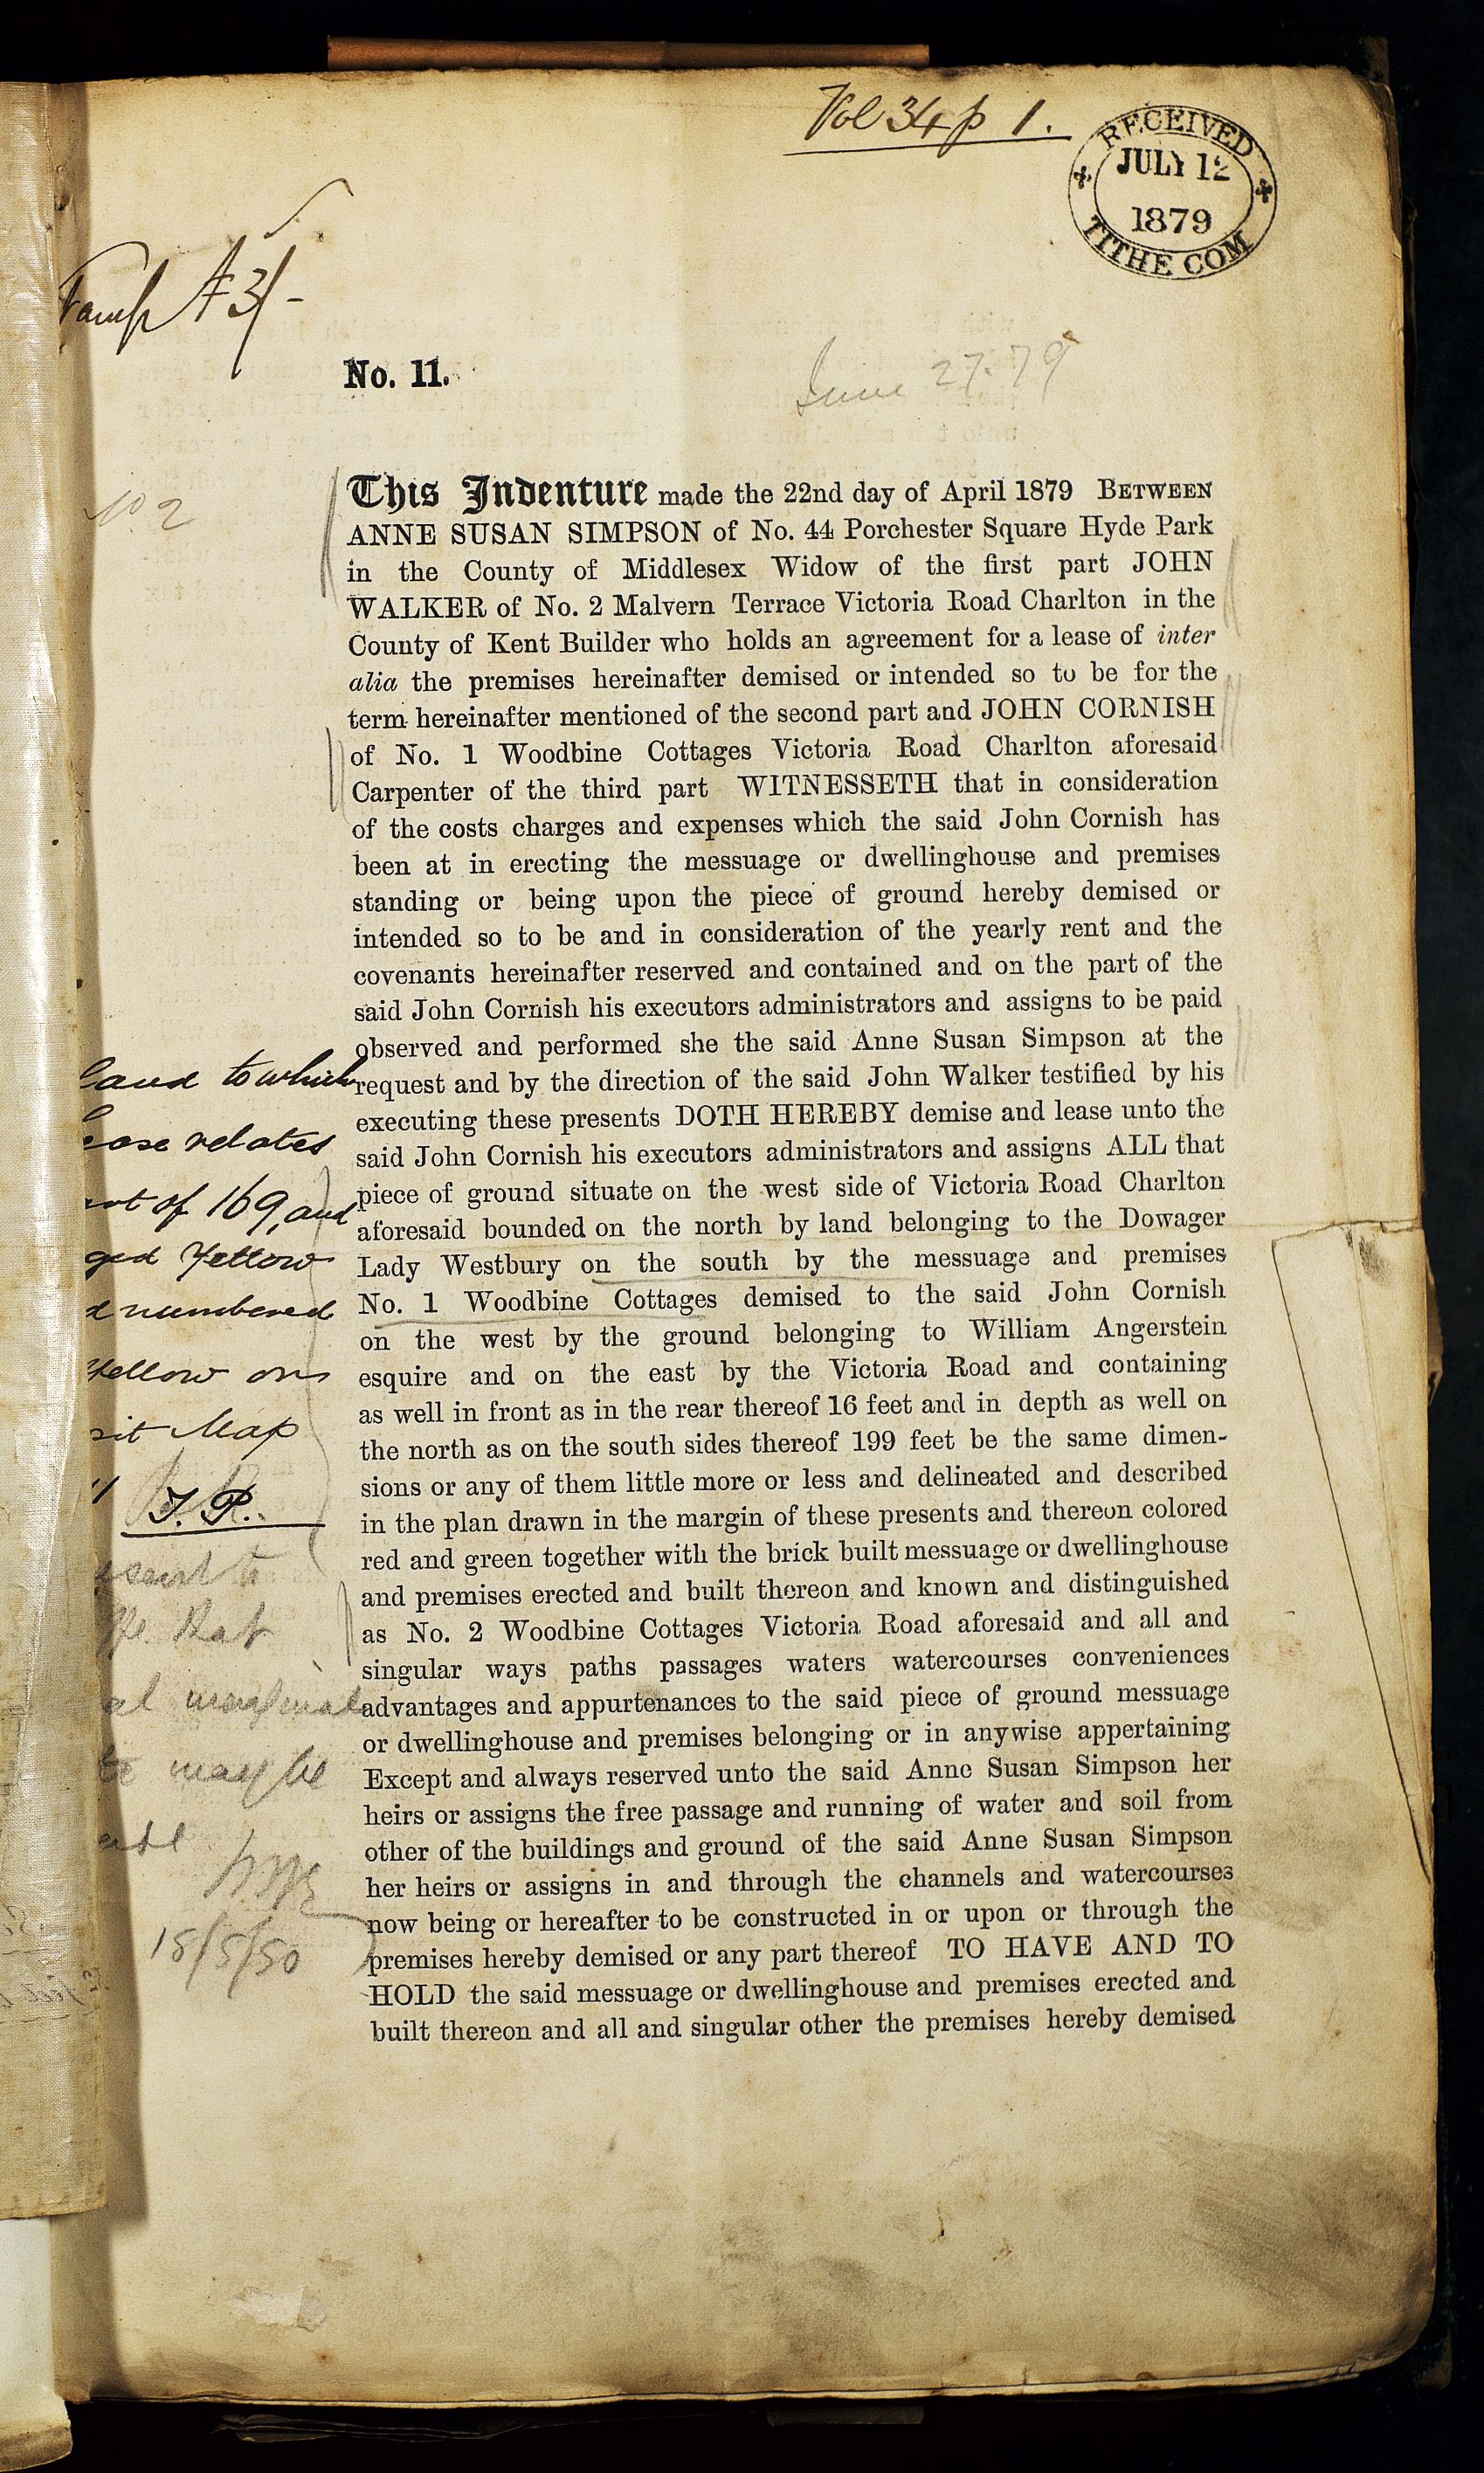 Vol 34 p 1.
RECEIVED
JULY 12
1879
TITHE COM
3/-
No. 11.
June 27. 79
No. 2
This Indenture made the 22nd day of April 1879 BETWEEN
ANNE SUSAN SIMPSON of No. 44 Porchester Square Hyde Park
in the County of Middlesex Widow of the first part JOHN
WALKER of No. 2 Malvern Terrace Victoria Road Charlton in the
County of Kent Builder who holds an agreement for a lease of inter
alia the premises hereinafter demised or intended so to be for the
term hereinafter mentioned of the second part and JOHN CORNISH
of No. 1 Woodbine Cottages Victoria Road Charlton aforesaid
Carpenter of the third part WITNESSETH that in consideration
of the costs charges and expenses which the said John Cornish has
been at in erecting the messuage or dwellinghouse and premises
standing or being upon the piece of ground hereby demised or
intended so to be and in consideration of the yearly rent and the
covenants hereinafter reserved and contained and on the part of the
said John Cornish his executors administrators and assigns to be paid
observed and performed she the said Anne Susan Simpson at the
request and by the direction of the said John Walker testified by his
executing these presents DOTH HEREBY demise and lease unto the
said John Cornish his executors administrators and assigns ALL that
piece of ground situate on the west side of Victoria Road Charlton
aforesaid bounded on the north by land belonging to the Dowager
Lady Westbury on the south by the messuage and premises
No. 1 Woodbine Cottages demised to the said John Cornish
on the west by the ground belonging to William Angerstein
esquire and on the east by the Victoria Road and containing
as well in front as in the rear thereof 16 feet and in depth as well on
the north as on the south sides thereof 199 feet be the same dimen-
sions or any of them little more or less and delineated and described
in the plan drawn in the margin of these presents and thereon colored
red and green together with the brick built messuage or dwellinghouse
and premises erected and built thereon and known and distinguished
as No. 2 Woodbine Cottages Victoria Road aforesaid and all and
singular ways paths passages waters watercourses conveniences
advantages and appurtenances to the said piece of ground messuage
or dwellinghouse and premises belonging or in anywise appertaining
Except and always reserved unto the said Anne Susan Simpson her
heirs or assigns the free passage and running of water and soil from
other of the buildings and ground of the said Anne Susan Simpson
her heirs or assigns in and through the channels and watercourses
now being or hereafter to be constructed in or upon or through the
premises hereby demised or any part thereof TO HAVE AND TO
HOLD the said messuage or dwellinghouse and premises erected and
built thereon and all and singular other the premises hereby demised
land to which
ease relates
of 169, and
ged Yellow
numbered
Yellow on
sit Map
T. P.
that
al marginal
may be
18/5/50